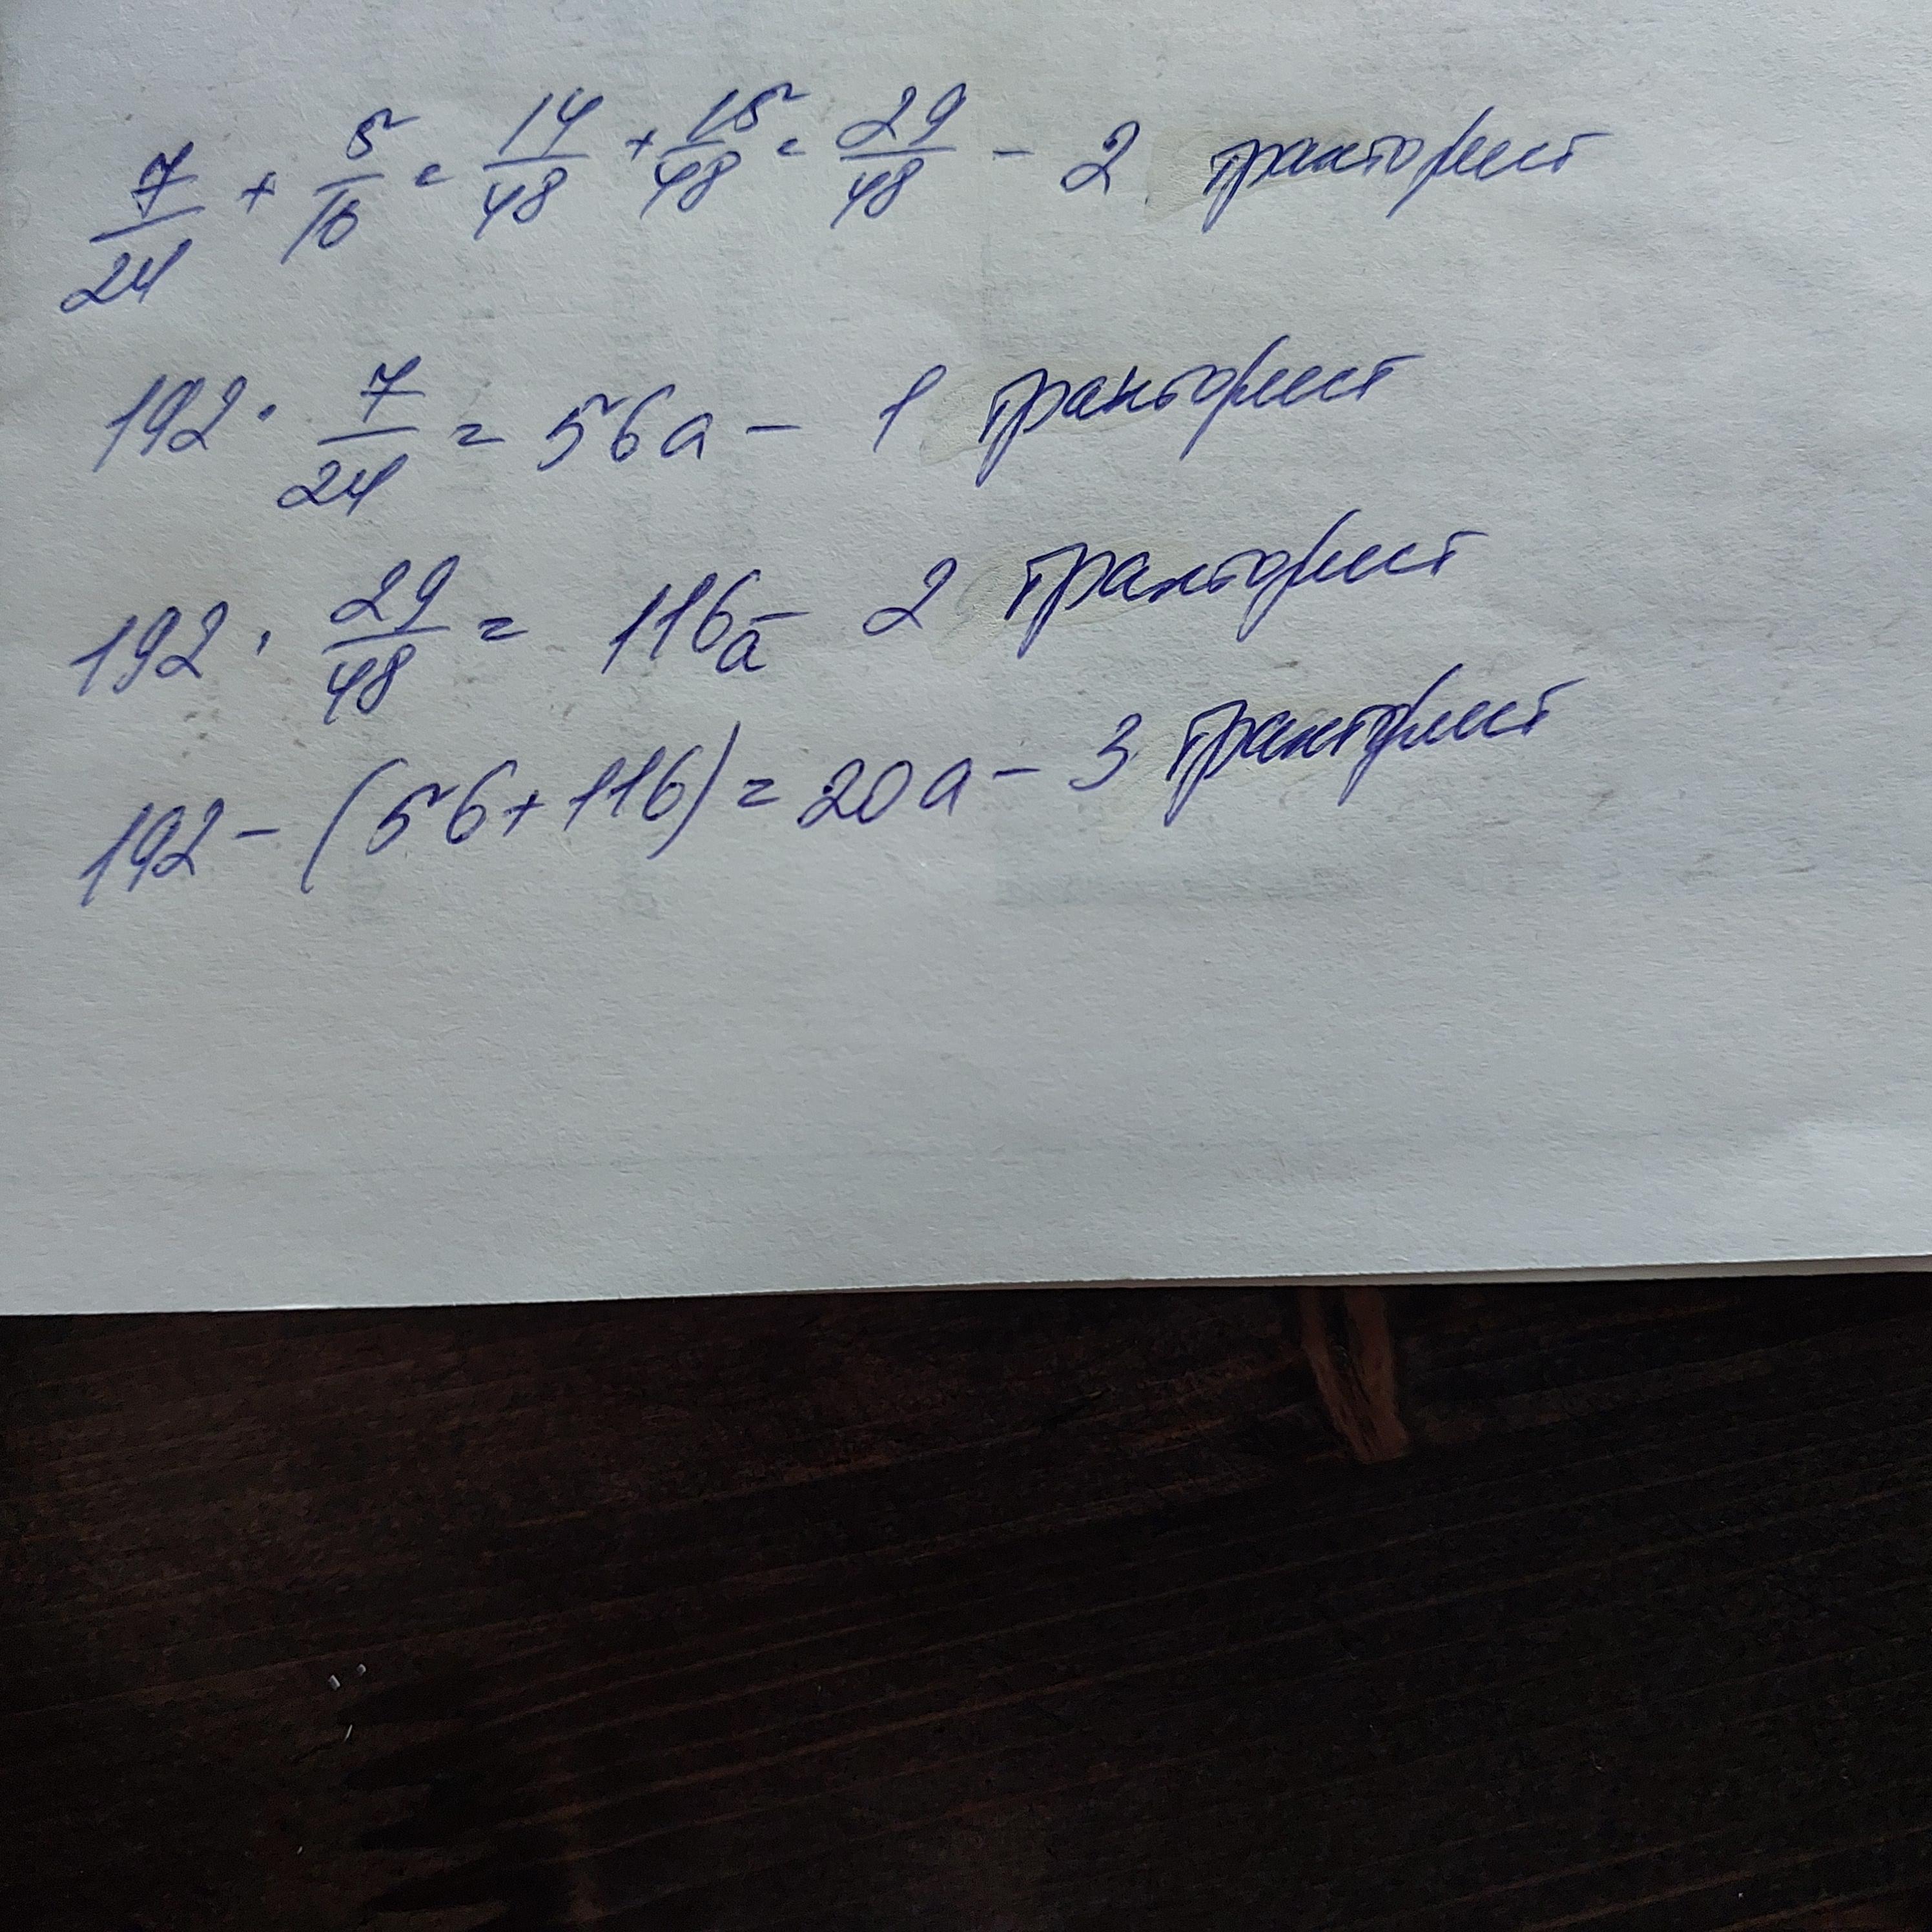 7/24 + 5/16 = 14/48 + 15/48 = 29/48 - 2 тракторист
192 · 7/24 = 56а - 1 тракторист
192 · 29/48 = 116а - 2 тракторист
192 - (56 + 116) = 20а - 3 тракторист